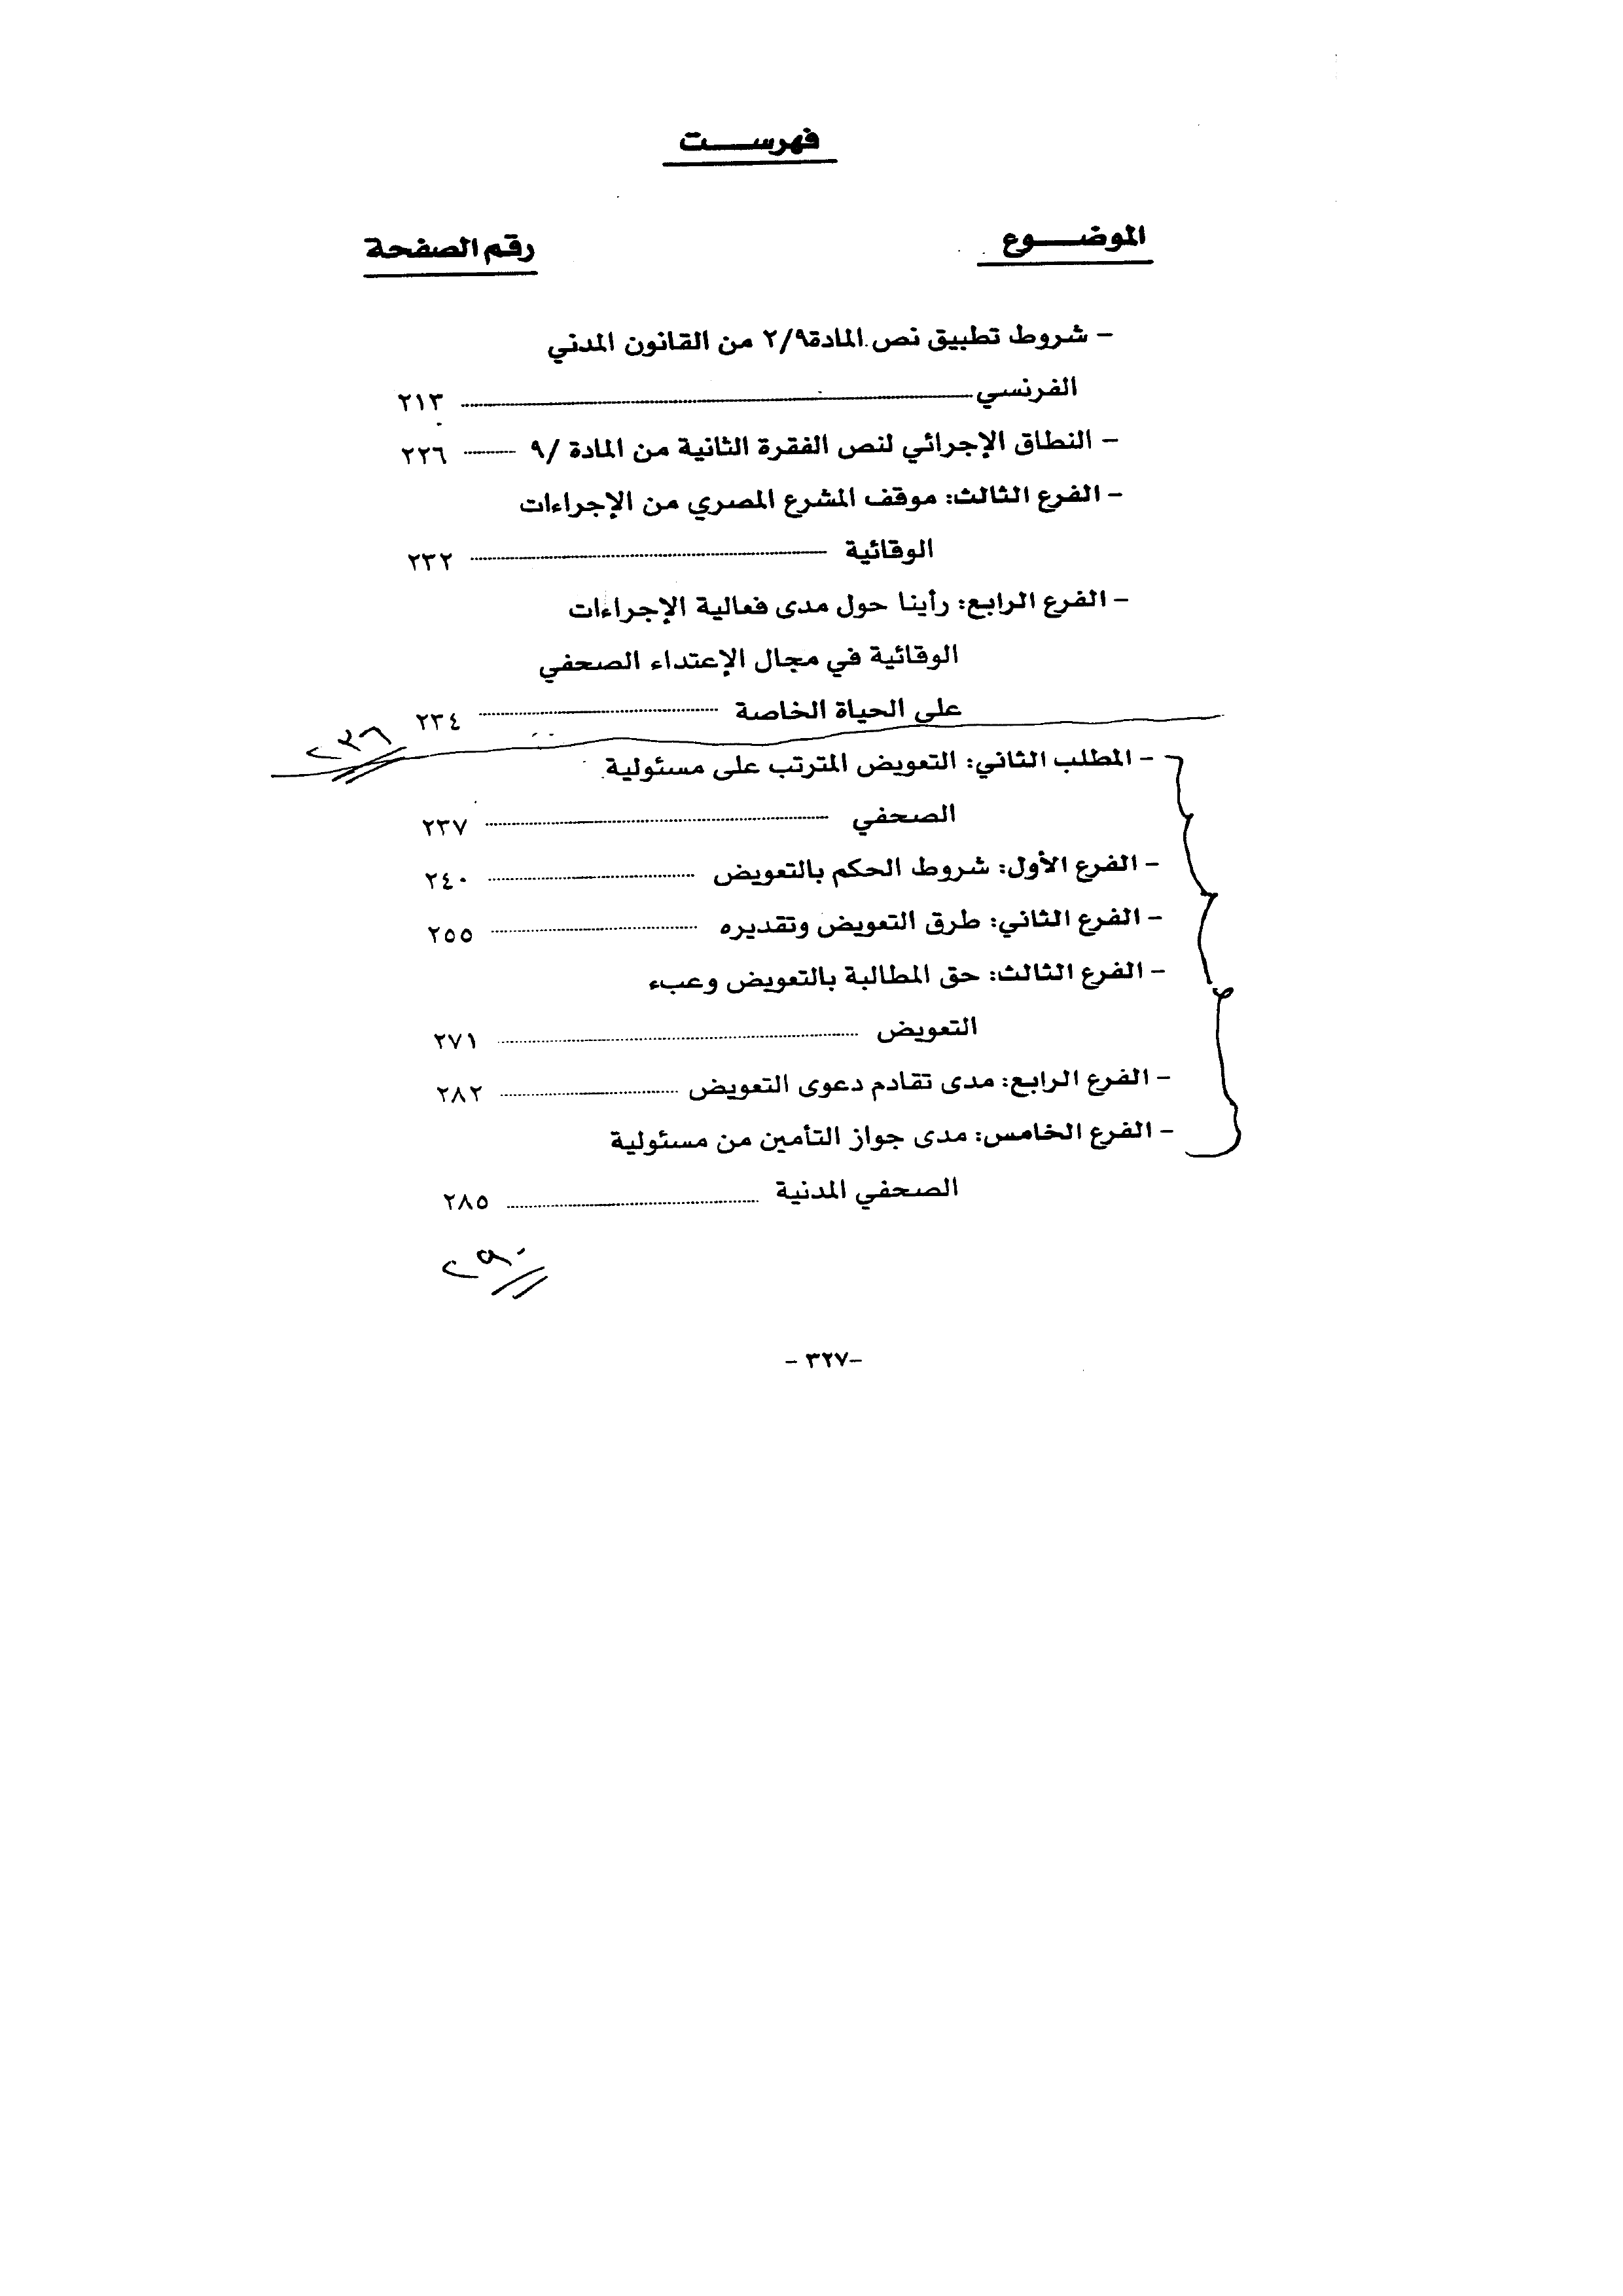 فهرســـت
الموضـــوع
رقم الصفحة
- شروط تطبيق نص المادة ٢/٩ من القانون المدني
الفرنسي ........ ٢١٣
- النطاق الإجرائي لنص الفقرة الثانية من المادة /٩ ........ ٢٢٦
- الفرع الثالث: موقف المشرع المصري من الإجراءات
الوقائية ........ ٢٣٢
- الفرع الرابع: رأينا حول مدى فعالية الإجراءات
الوقائية في مجال الإعتداء الصحفي
على الحياة الخاصة ........ ٢٣٤
٢٣٦
- المطلب الثاني: التعويض المترتب على مسئولية
الصحفي ........ ٢٣٧
- الفرع الأول: شروط الحكم بالتعويض ........ ٢٤٠
- الفرع الثاني: طرق التعويض وتقديره ........ ٢٥٥
- الفرع الثالث: حق المطالبة بالتعويض وعبء
التعويض ........ ٢٧١
- الفرع الرابع: مدى تقادم دعوى التعويض ........ ٢٨٢
- الفرع الخامس: مدى جواز التأمين من مسئولية
الصحفي المدنية ........ ٢٨٥
٢٩٠
-٣٢٧-